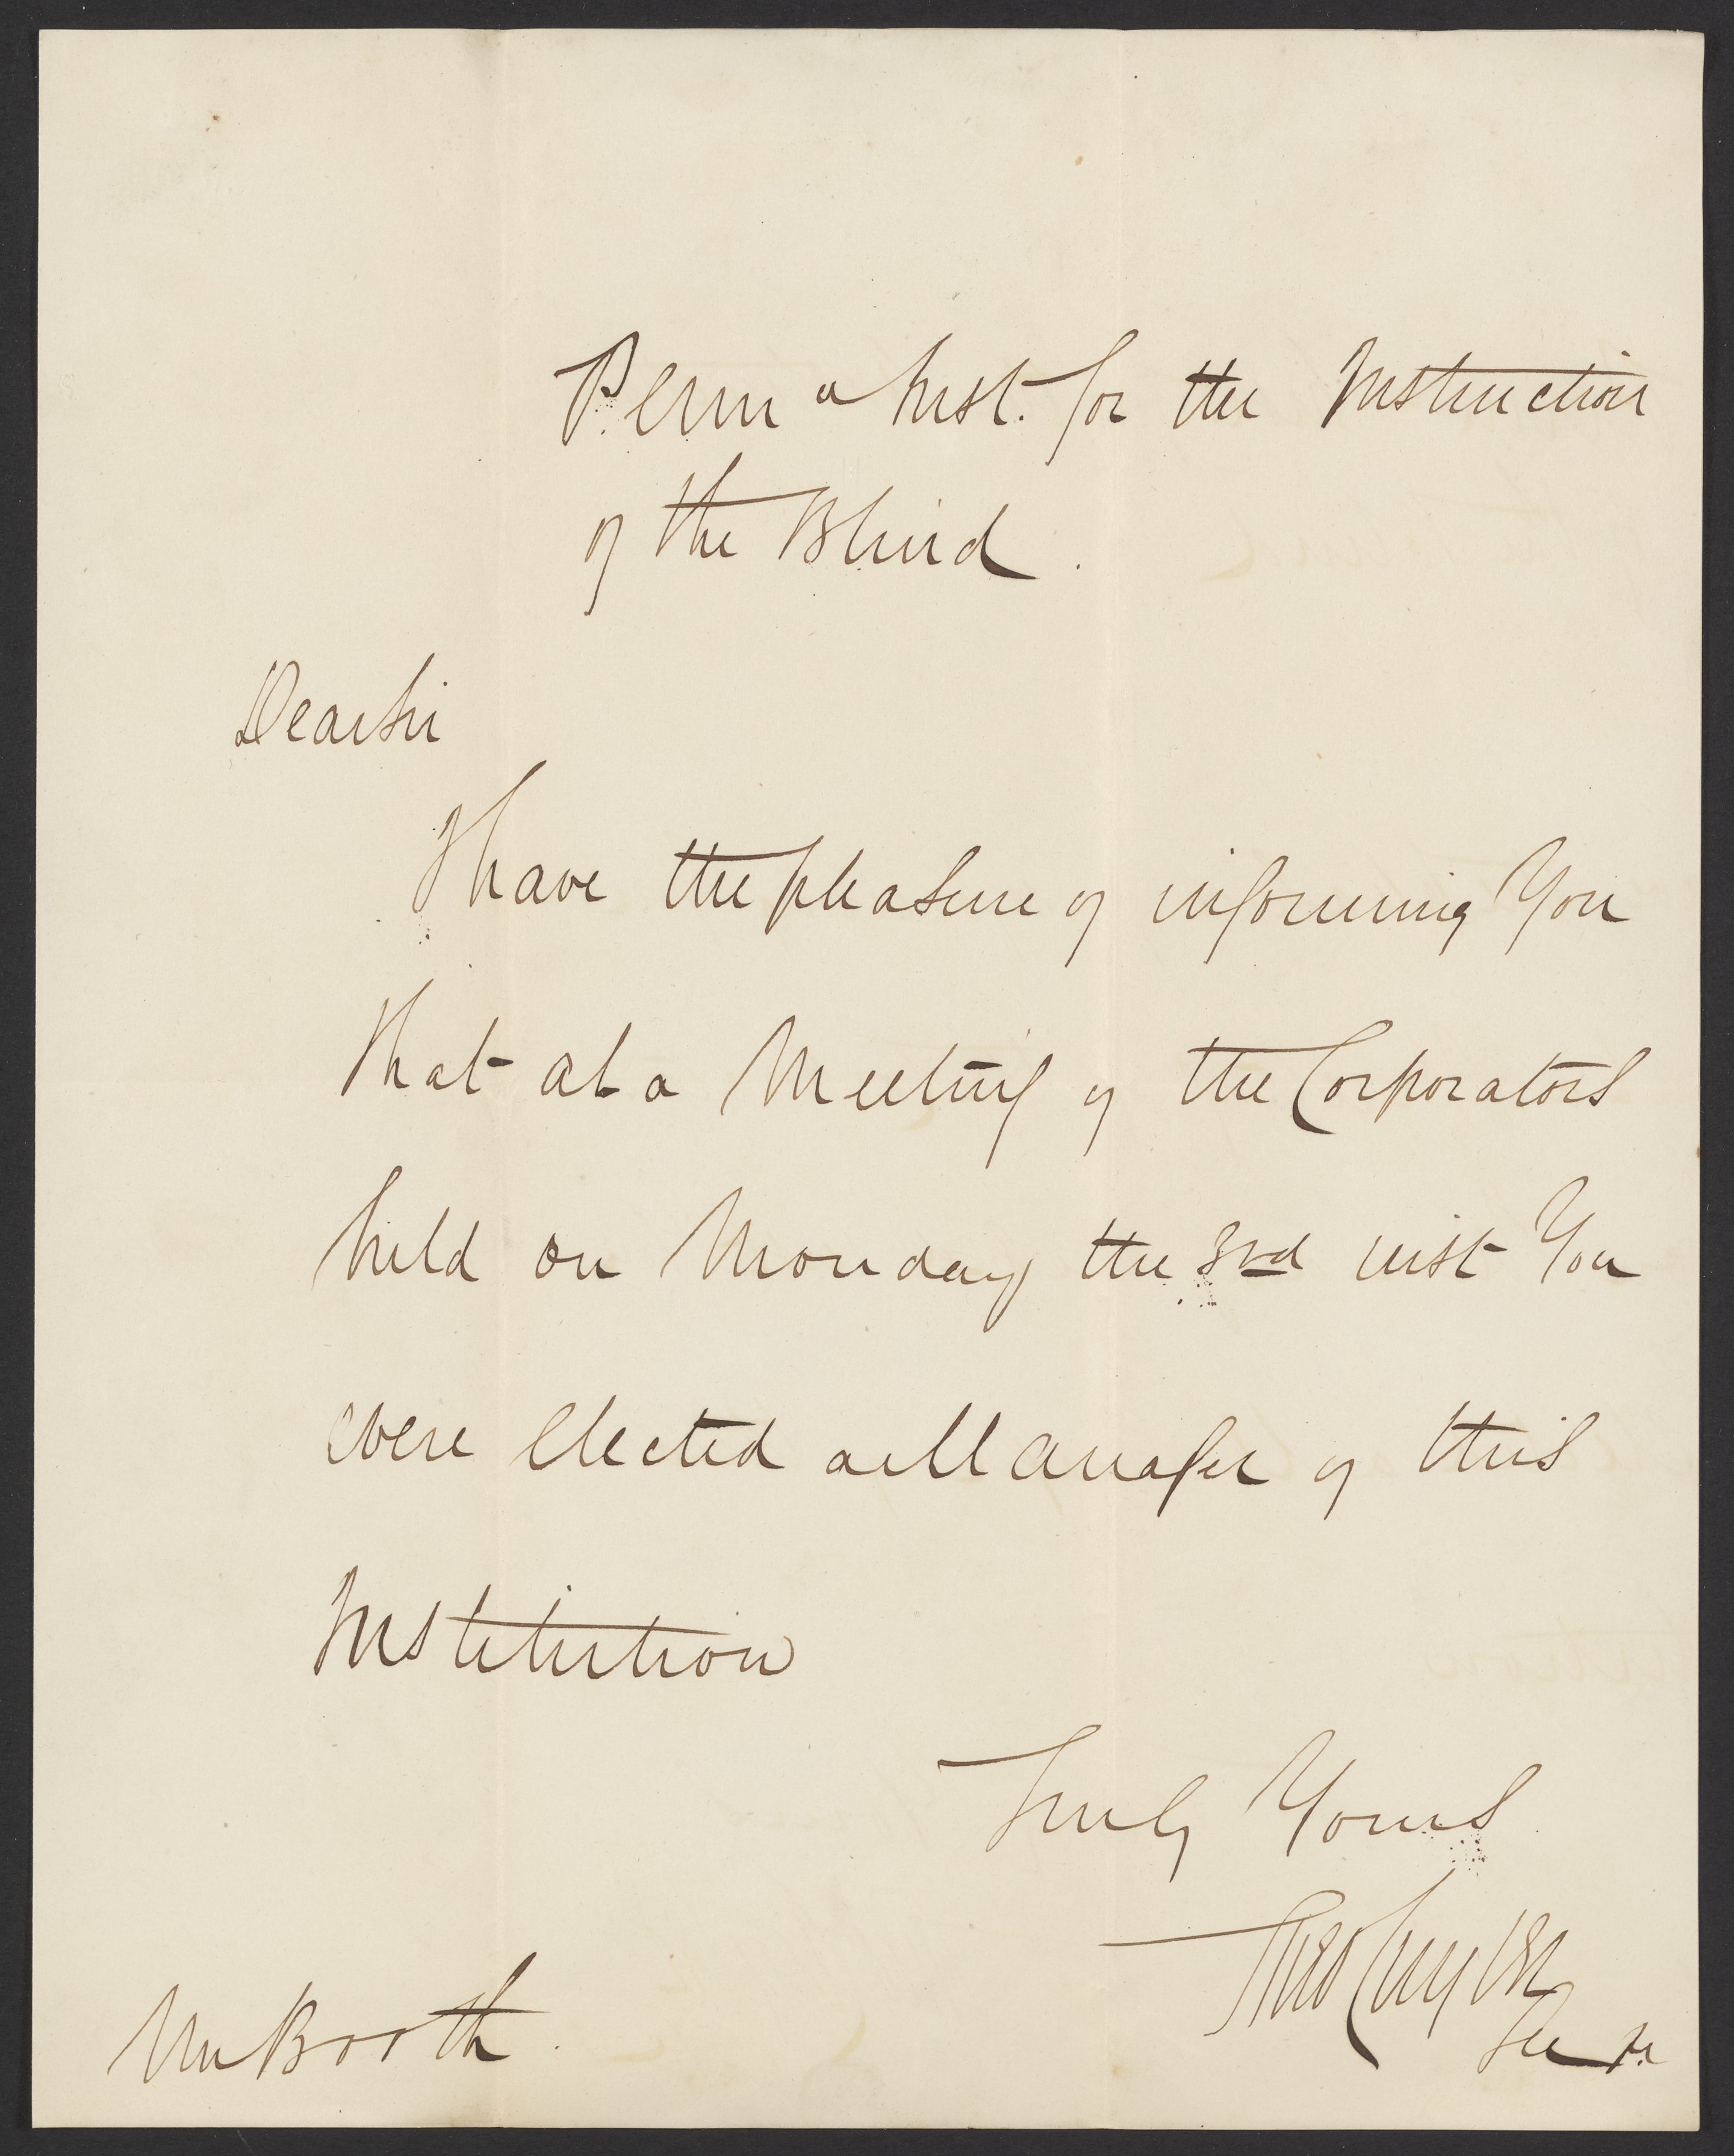 Penna Inst. for the Instruction
of the Blind.
Dear Sir
I have the pleasure of informing You
that at a Meeting of the Corporators
held on Monday the 3rd inst You
were Elected a Manager of this
Institution
Truly Yours
Theo Cuyler
Mr Booth.